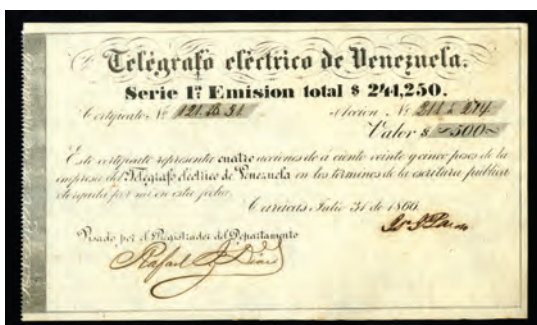 Telégrafo eléctrico de Venezuela.
Serie 1ª Emision total $ 244,250.
Certificato Nº Accion Nº 211 á 214
Valor $ =500=
Este certificato representa cuatro acciones de á ciento veinte y cinco pesos de la
empresa del Telégrafo eléctrico de Venezuela en los términos de la escritura pública
otorgada por mi en esta fecha.
Carácas Julio 31 de 1860.
Visado por el Registrador del Departamento
Rafael Diaz